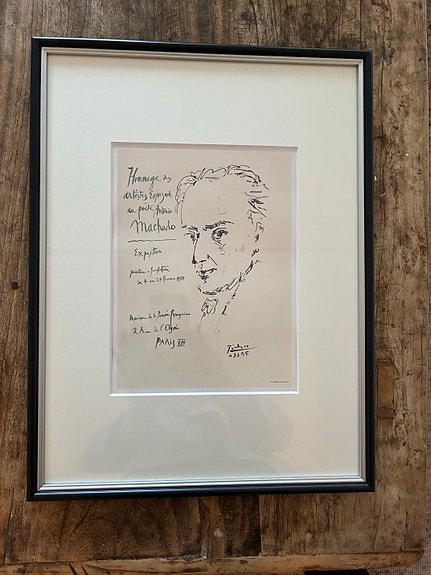 Hommage des
artistes Espagnols
au poète Antonio
Machado
Exposition
peinture - sculpture
du 4 au 24 février 1955
Maison de la Pensée Française
2 Rue de l'Elysée
PARIS VIII
Picasso